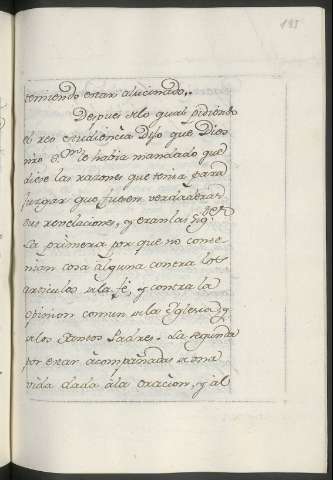 195
temiendo estar alucinado.
Despues de lo qual pidiendo
el reo audiencia Dijo que Dios
nro Sor. le había mandado que
diese las razones que tenia para
juzgar que fuesen verdaderas
sus revelaciones, y eran las sigtes
La primera por que no conte-
nian cosa alguna contra los
articulos de la fe, y contra la
opinion comun de la Yglesia, y
de los Santos Padres. La segunda
por estar acompañadas de una
vida dada á la oracion, y al